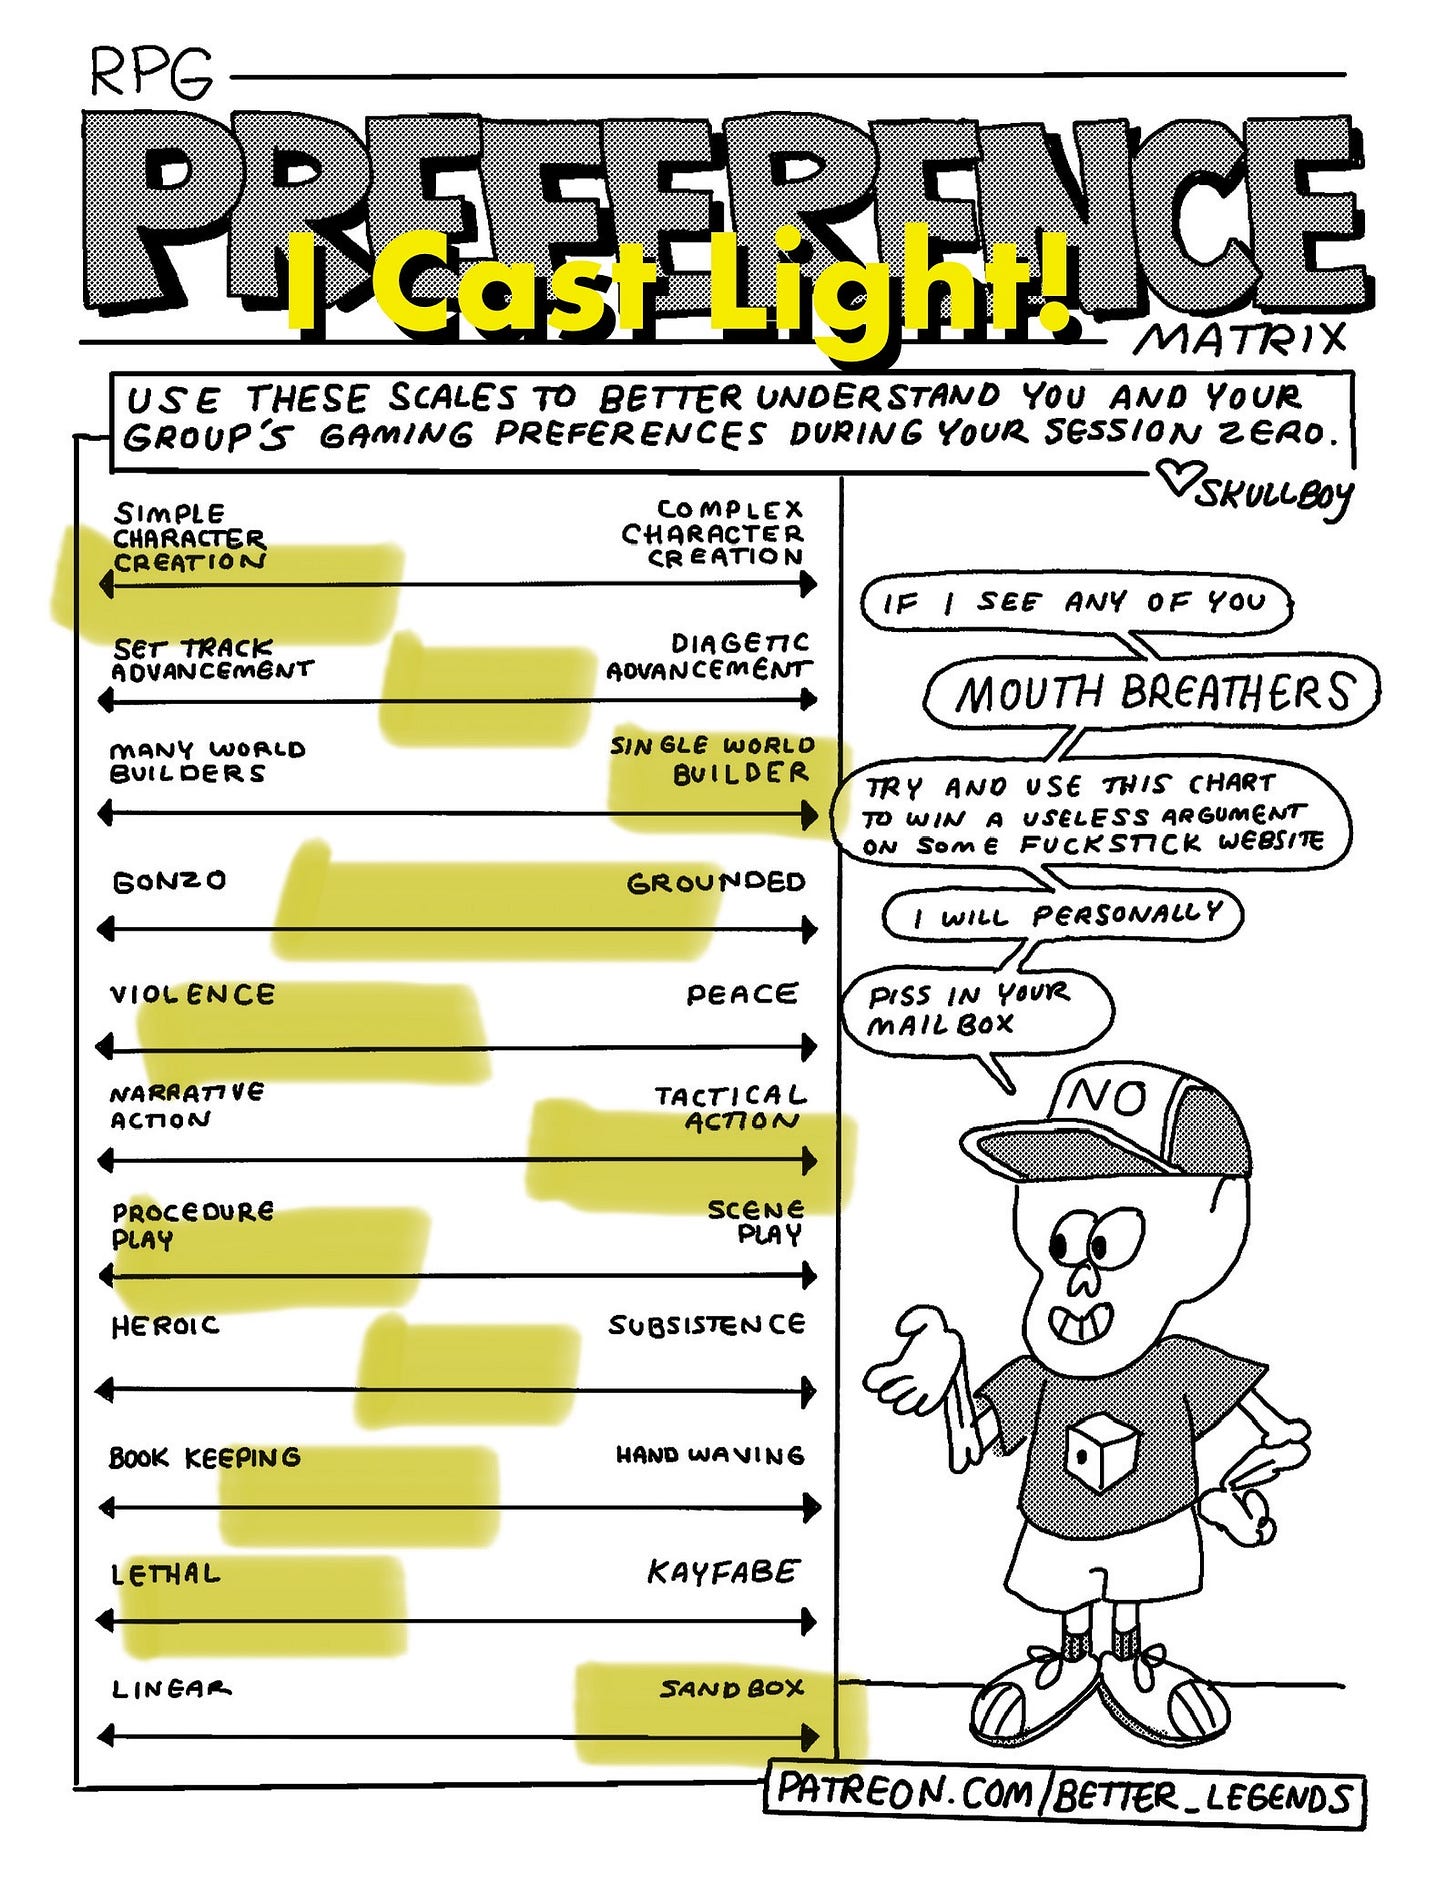 RPG
PREFERENCE
I Cast Light!
MATRIX
USE THESE SCALES TO BETTER UNDERSTAND YOU AND YOUR
GROUP'S GAMING PREFERENCES DURING YOUR SESSION ZERO.
SKULLBOY
SIMPLE
CHARACTER
CREATION
COMPLEX
CHARACTER
CREATION
SET TRACK
ADVANCEMENT
DIAGETIC
ADVANCEMENT
MANY WORLD
BUILDERS
SINGLE WORLD
BUILDER
GONZO
GROUNDED
VIOLENCE
PEACE
NARRATIVE
ACTION
TACTICAL
ACTION
PROCEDURE
PLAY
SCENE
PLAY
HEROIC
SUBSISTENCE
BOOK KEEPING
HAND WAVING
LETHAL
KAYFABE
LINEAR
SANDBOX
IF I SEE ANY OF YOU
MOUTH BREATHERS
TRY AND USE THIS CHART
TO WIN A USELESS ARGUMENT
ON SOME FUCKSTICK WEBSITE
I WILL PERSONALLY
PISS IN YOUR
MAILBOX
NO
PATREON.COM/BETTER_LEGENDS